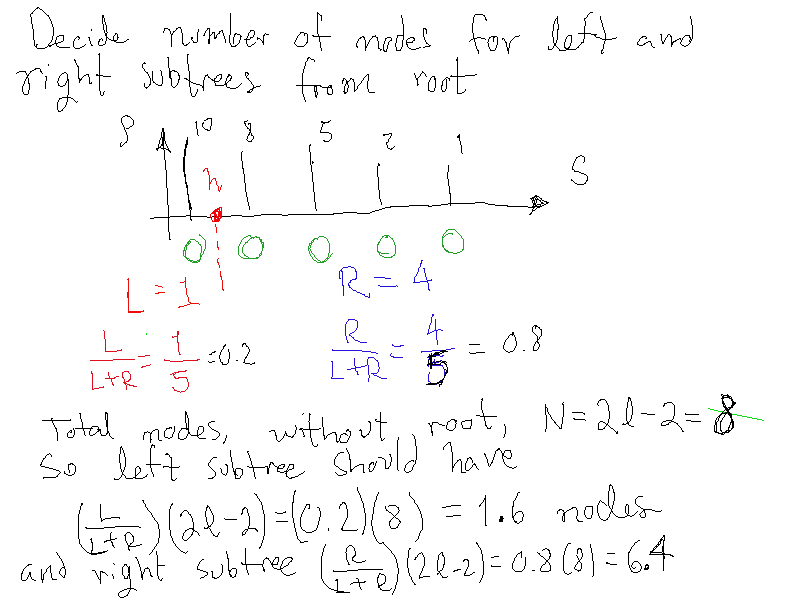 Decide number of nodes for left and
right subtrees from root
ρ 10 8 5 2 1
h S
L = 1 R = 4
L/L+R = 1/5 = 0.2 R/L+R = 4/5 = 0.8
Total nodes, without root, N = 2l-2 = 8
So left subtree should have
(L/L+R)(2l-2) = (0.2)(8) = 1.6 nodes
and right subtree (R/L+R)(2l-2) = 0.8(8) = 6.4